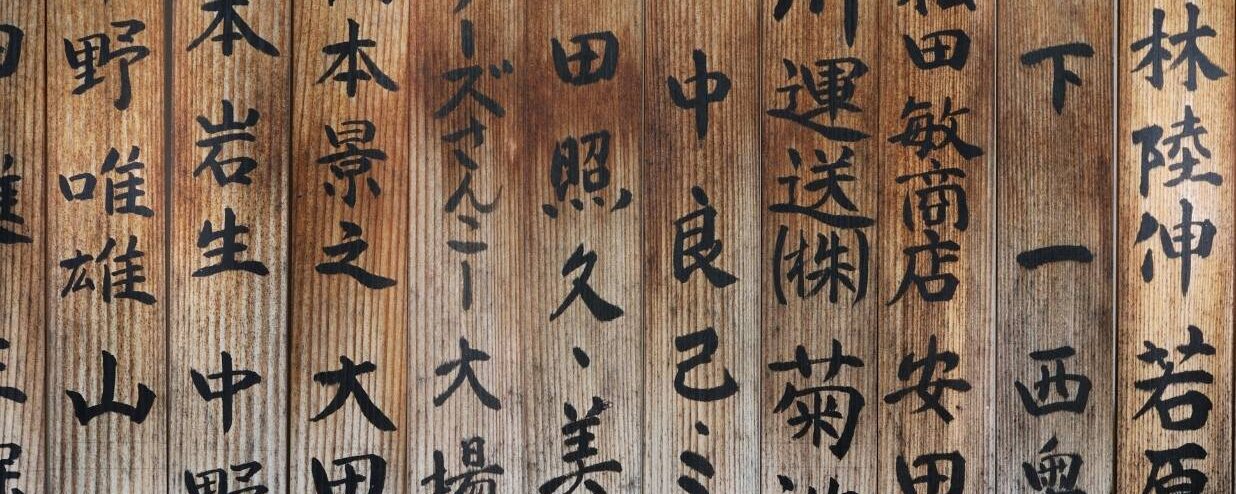 林陸伸 若原
下 一 西奥
田敏商店 安田
川運送(株) 菊池
中 良己、ミ
田照久、美
ーズさんこー 大場
本景之 大田
本岩生 中野
野唯雄 山